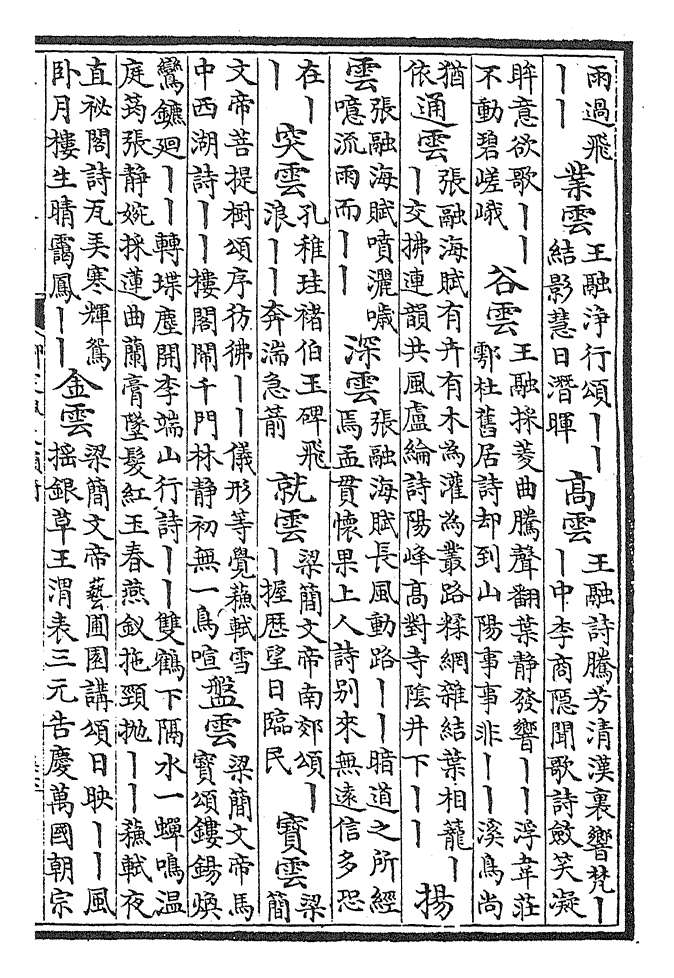 雨過飛丨丨業雲王融淨行頌丨丨結影慧日潛暉高雲王融詩騰芳清漢裏響梵丨丨中李商隱聞歌詩斂笑凝
眸意欲歌丨丨不動碧嵯峨谷雲王融採菱曲騰聲翻葉静發響丨丨浮韋莊鄠杜舊居詩却到山陽事事非丨丨溪鳥尚
猶依通雲張融海賦有卉有木為灌為叢路糅網雜結葉相籠丨丨交拂連韻共風盧綸詩陽峰高對寺陰井下丨丨揚
雲張融海賦噴灑噦噫流雨而丨丨深雲張融海賦長風動路丨丨暗道之所經焉孟貫懷果上人詩别來無遠信多恐
在丨丨突雲孔稚珪褚伯玉碑飛浪丨丨奔湍急箭就雲梁簡文帝南郊頌丨丨握歴望日臨民寳雲梁簡
文帝菩提樹頌序彷彿丨丨儀形等覺蘇軾雪中西湖詩丨丨樓閣鬧千門林静初無一鳥喧盤雲梁簡文帝馬寳頌鏤鍚煥
鸞鑣廻丨丨轉堞塵開李端山行詩丨丨雙鶴下隔水一蟬鳴温庭筠張静婉採蓮曲蘭膏墜髮紅玉春燕釵拖頸抛丨丨蘇軾夜
直祕閣詩瓦美寒輝鴛卧月樓生晴靄鳳丨丨金雲梁簡文帝藝圃園講頌日映丨丨風揺銀草王渭表三元告慶萬國朝宗